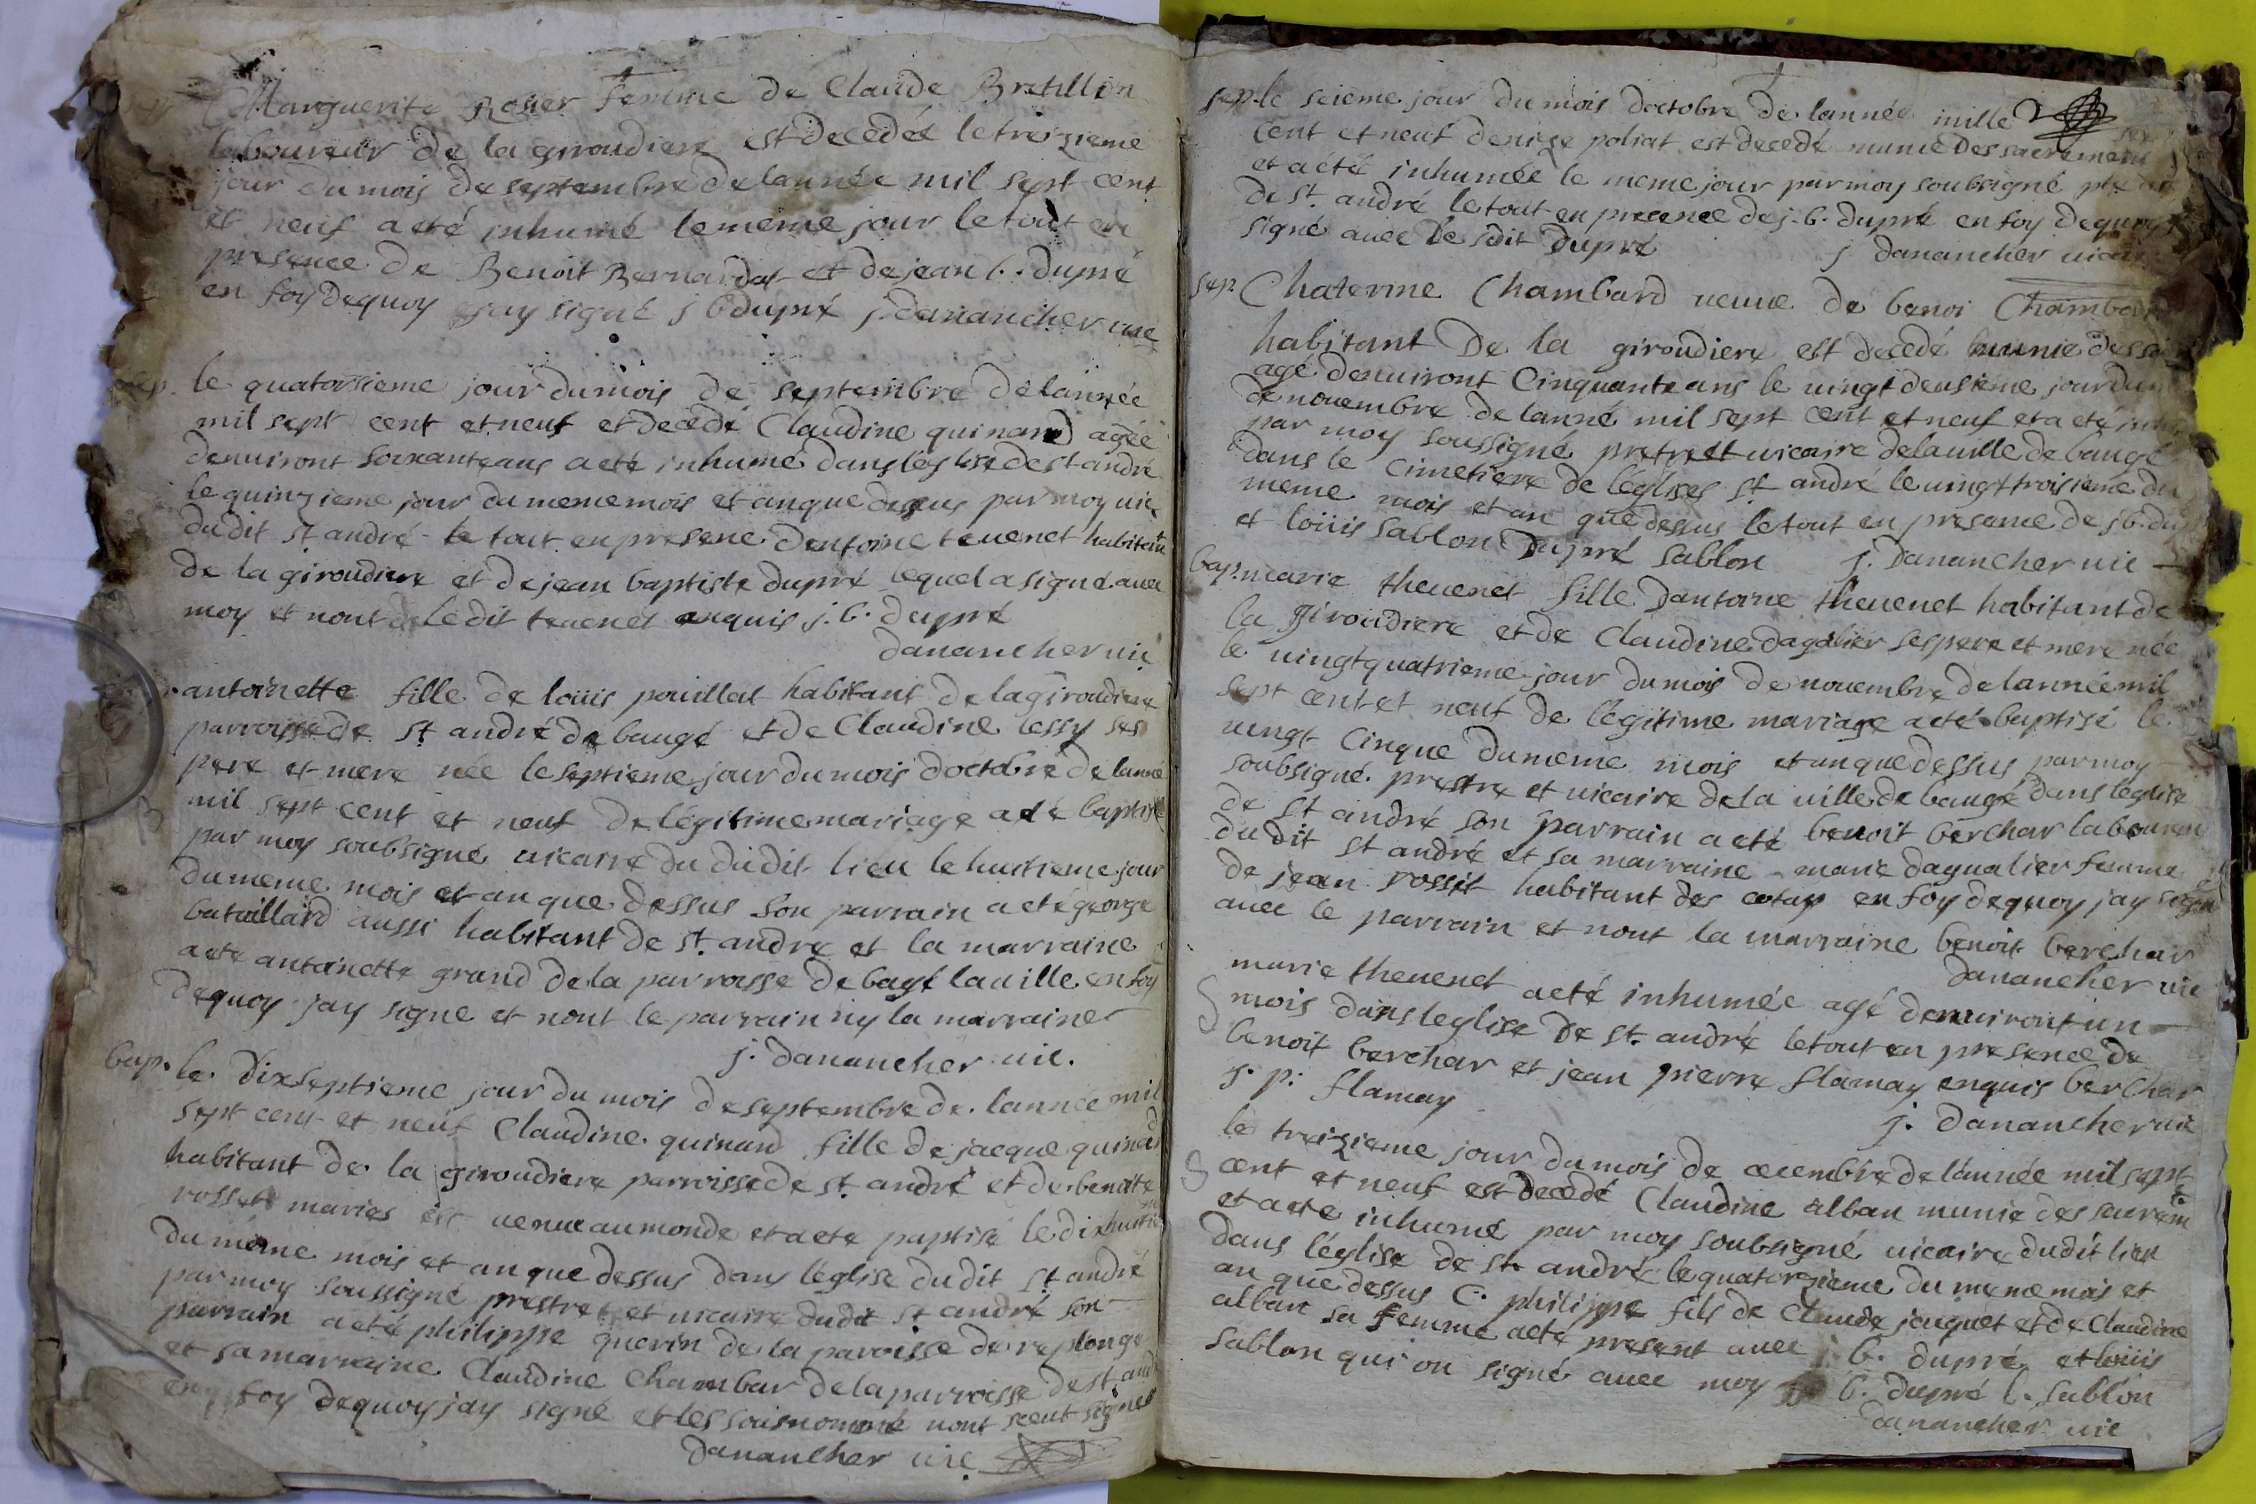 Marguerite Rosier femme de Claude Bretillon
laboureur de la giroudiere est decedée le treizieme
jour du mois de septembre de lannée mil sept cent
et neuf a eté inhumé le meme jour le tout en
presence de Benoit Bernardat et de jean b. dupré
en foy dequoy jay signé j b dupré j. danancher vic
sep. le quatorsieme jour du mois de septembre de lannée
mil sept cent et neuf et decedé Claudine quinard agée
denuiront soixante ans a eté inhumé dans leglise de st andré
le quinzieme jour du meme mois et an que dessus par moy vic
du dit st andré le tout en presene dentoine teuenet habitant
de la giroudiere et de jean baptiste dupré lequel a signé auec
moy et nont ledit teuenet enquis j. b. dupré
danancher vic
antoinette fille de loüis pouillat habitant de la giroudiere
parroisse de st andré de baugé et de Claudine lessy ses
pere et mere née le septieme jour du mois doctobre de lannée
mil sept cent et neuf de légitime mariage a eté baptisé
par moy soubsigné vicaire du dudit lieu le huitieme jour
du meme mois et an que dessus son parrain a eté george
bataillard aussi habitant de st. andre et la marraine
a ete antoinette grand de la parroisse de bagé la ville en foy
dequoy jay signe et nont le parrain ny la marraine
j. danancher vic.
bap. le dixseptieme jour du mois de septembre de lannée mil
sept cent et neuf Claudine quinard fille de jacque quinard
habitant de la giroudiere parroisse de st andré et de benoite
rosset maries est uenue au monde et a ete baptisé le dixhuitie
du méme mois et an que dessus dans léglise du dit st andré
par moy soussigné prestre et vicaire dudit st andré son
parrain a eté philippe querin de la paroisse de replonge
et sa marraine Claudine Chambar de la parroisse de st and
en foy dequoy jay signé et les sousnommé nont sceut signer
danancher vic
sep. le seieme jour du mois doctobre de lannée mille
cent et neuf denize poliat est decedé munie des sacremens
et a été inhumée le meme jour par moy soubsigné
de st. andré le tout en precence de j. b. dupré en foy dequoy
signé auec le sdit dupré j danancher vicair
sep. Chaterine Chambard ueuue de benoi Chambar
habitant de la giroudiere est decedé munie des
agé denuiront Cinquante ans le uingt deusieme jour du
de nouembre de lanné mil sept cent et neuf et a eté
par moy soussigné pretre et uicaire de la uille de baugé
dans le cimetiere de léglises st andré le uingt troisieme du
meme mois et an que dessus le tout en presance de j b. du
et loüis sablon dupré sablon j. danancher vic
bap. marie theuenet fille dantoine theuenet habitant de
la giroudiere et de Claudine dagalier ses pere et mere née
le uingt quatrieme jour du mois de nouembre de lannée mil
sept cent et neuf de légitime mariage a eté baptisé le
uingt Cinque du meme mois et an que dessus par moy
soubsigné prestre et uicaire de la uille de baugé dans léglise
de st andré son parrain a eté benoit berchar laboureu
du dit st andré et sa marraine marie dagualier femme
de jean rossit habitant des cotay en foy dequoy jay signé
auec le parrain et nont la marraine benoit berchar
danancher vic
marie theuenet a eté inhumée agé denuiront un
mois dans leglise de st. andré le tout en presence de
benoit berchar et jean pierre flamay enquis berchar
j. p. flamay
j. danancher vic
le treizieme jour du mois de decembre de lannée mil sept
cent et neuf est decedé Claudine alban munie des sacrem
et a ete inhumé par moy soubsigné uicaire dudit lieu
dans léglise de st. andré le quatorzieme du meme mois et
an que dessus C. philippe fils de Claude jouquet et de Claudine
alban sa femme a eté present auec j. b. dupré et loüis
sablon qui on signé auec moy j b. dupré l. sablon
danancher vic